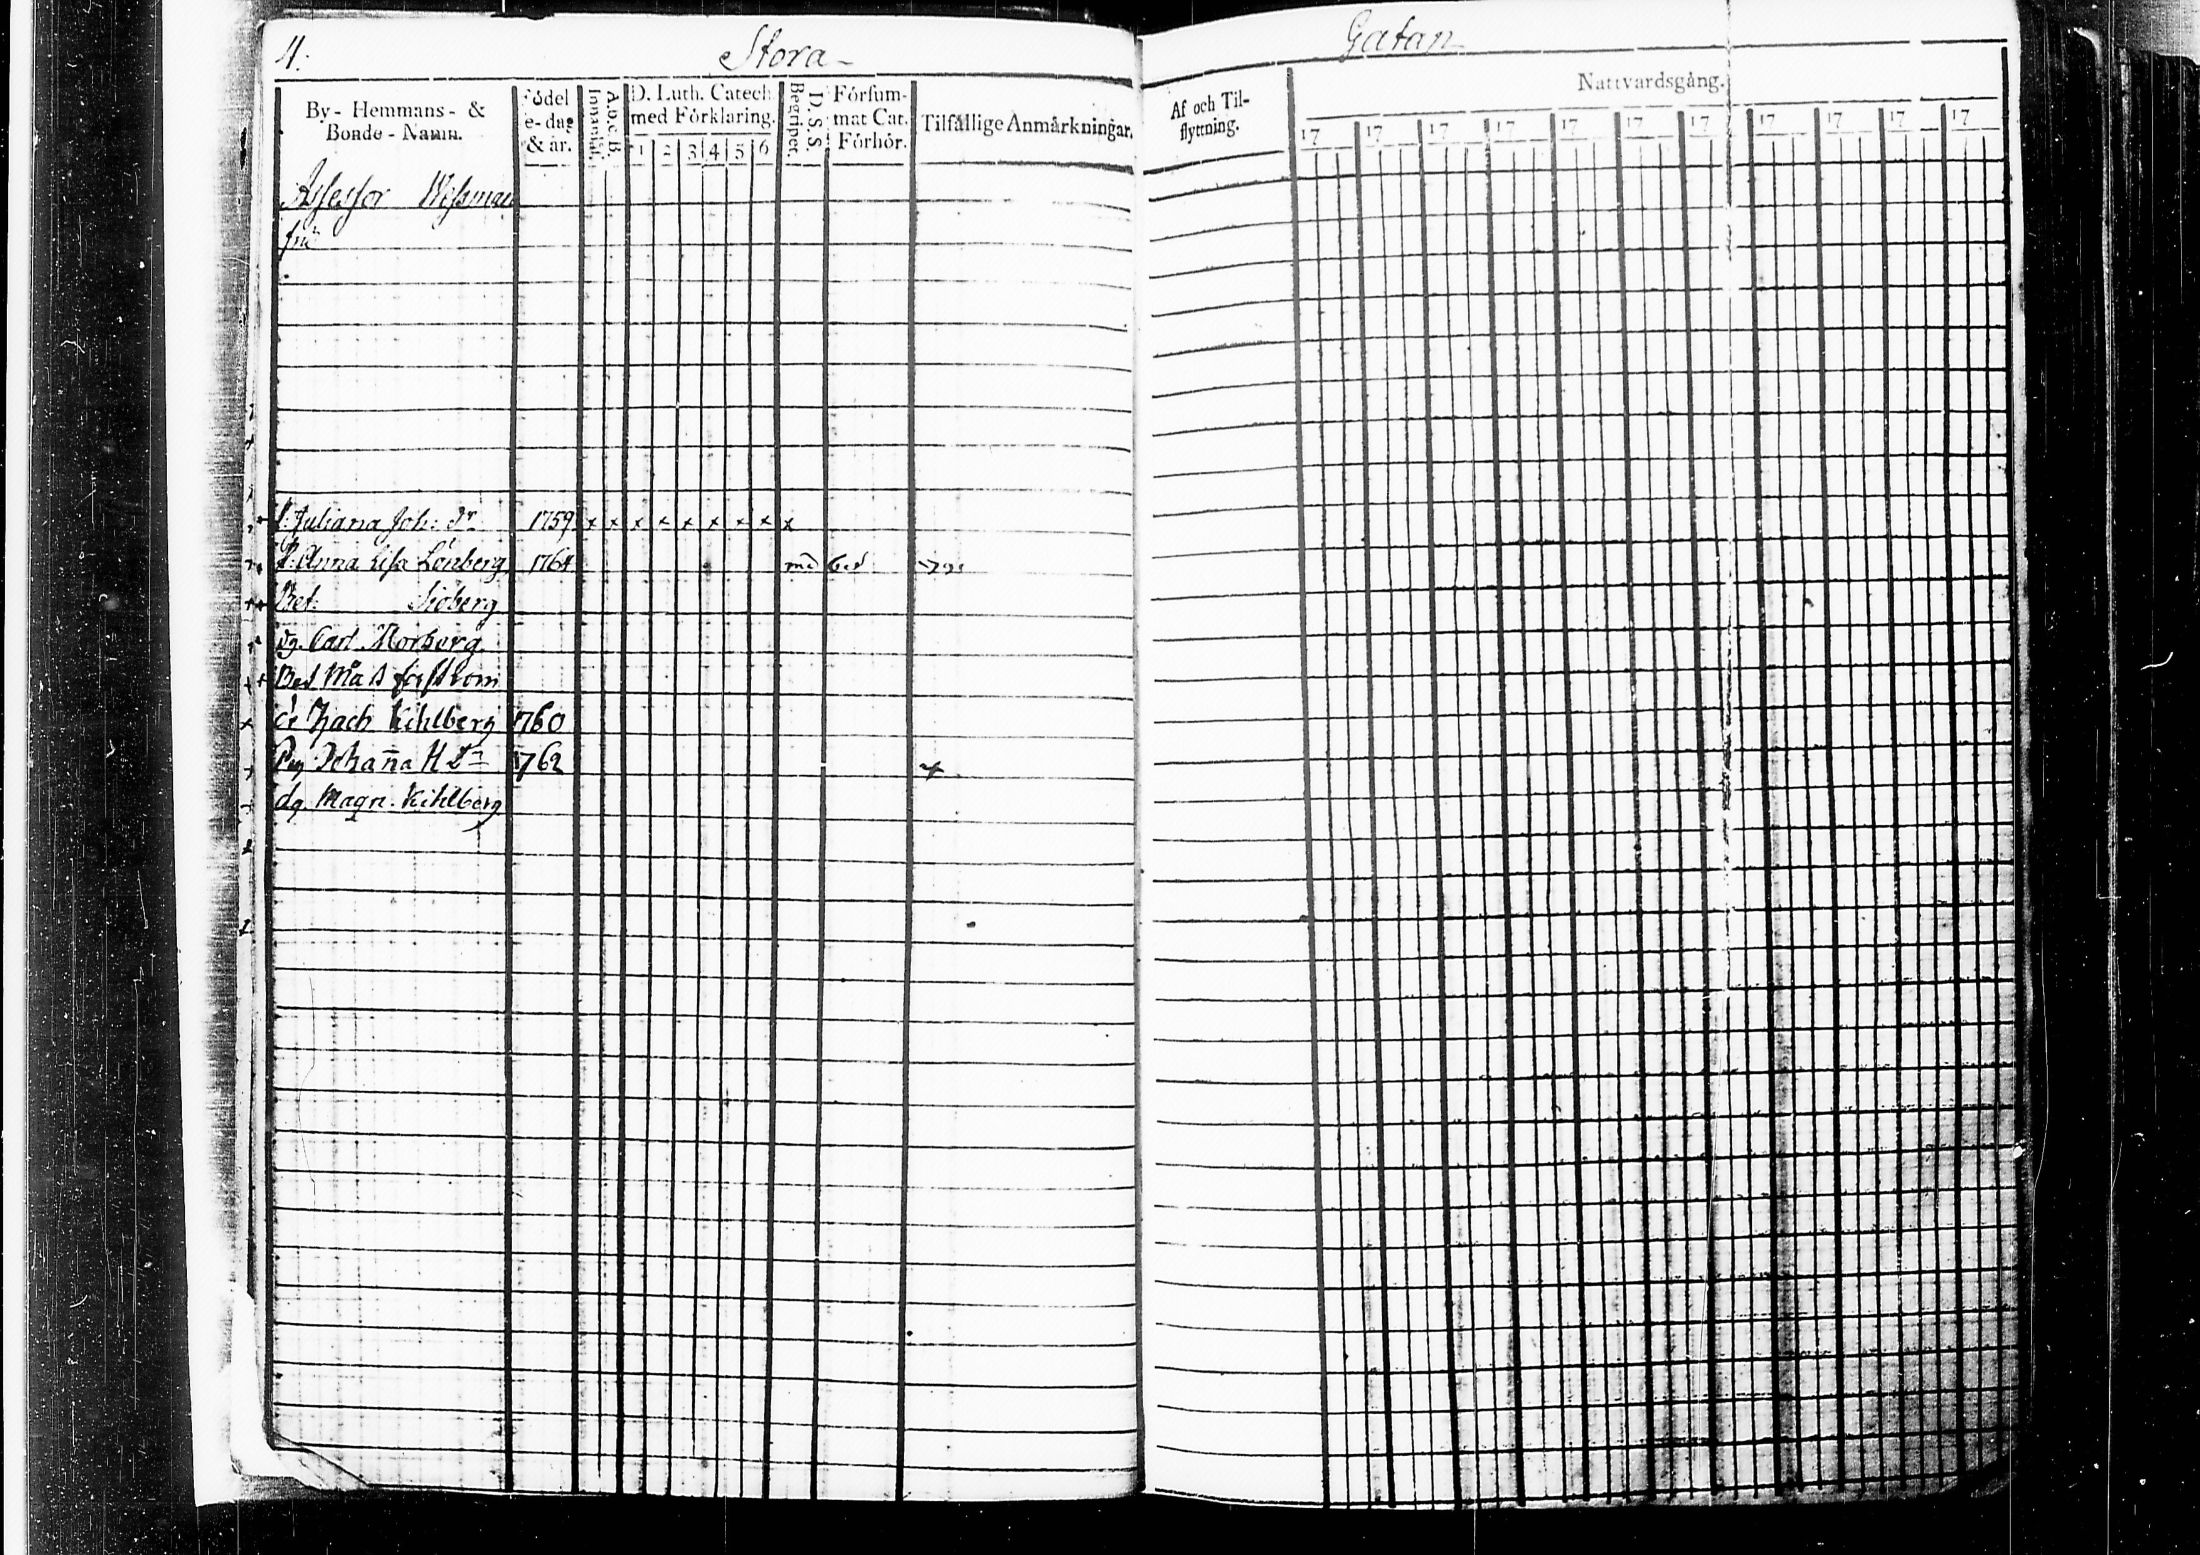 4. Stora-
Gatan
By- Hemmans- &
Bonde-Namn.
Födel
e-dag
& år.
A. b. c. B.
Innanläs.
D. Luth. Catech
med Förklaring.
1 2 3 4 5 6
D. S. S.
Begriper.
Försum-
mat Cat.
Förhör.
Tilfällige Anmärkningar.
Af och Til-
flyttning.
Nattvardsgång.
17 17 17 17 17 17 17 17 17 17 17
Assessor Wissman
fru
P. Juliana Joh: Dr 1759 x x x x x x x x x
P. Anna Lisa Lönberg 1764
Bet: Siöberg
Dg. Carl Norberg
Bet Måts forsstrom
Zach Kihlberg 1760
Pig Johan̄a H Dr 1762 x
dg. Magn. Kihlberg